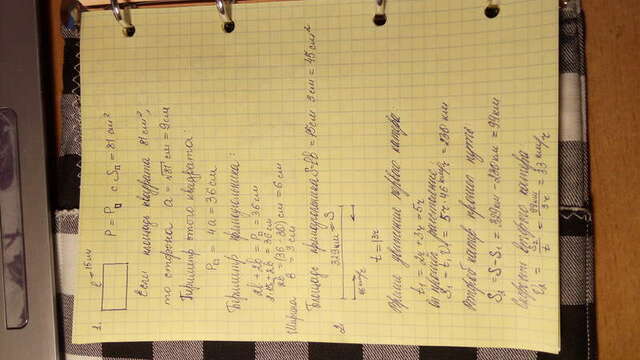 1.
15см
P = P□ с S□ = 81 см²
Если площадь квадрата 81 см²,
то сторона a = √81 см = 9 см
Периметр этого квадрата:
P□ = 4a = 36 см
Периметр прямоугольника:
2l + 2b = P□ = 36 см
2·15 + 2b = 36 см
2b = (36 - 30) см = 6 см
Ширина b = 3 см
Площадь прямоугольника S = lb = 15 см · 3 см = 45 см²
2
329 км = S
46 км/ч
t = 3ч
Время движения первого катера:
t₁ = 2ч + 3ч = 5ч
S₁ = t₁ = 5ч · 46 км/ч = 230 км
Второй катер прошел путь
S₂ = S - S₁ = 329 км - 230 км = 99 км
Скорость второго катера
= 99 км / 3ч = 33 км/ч